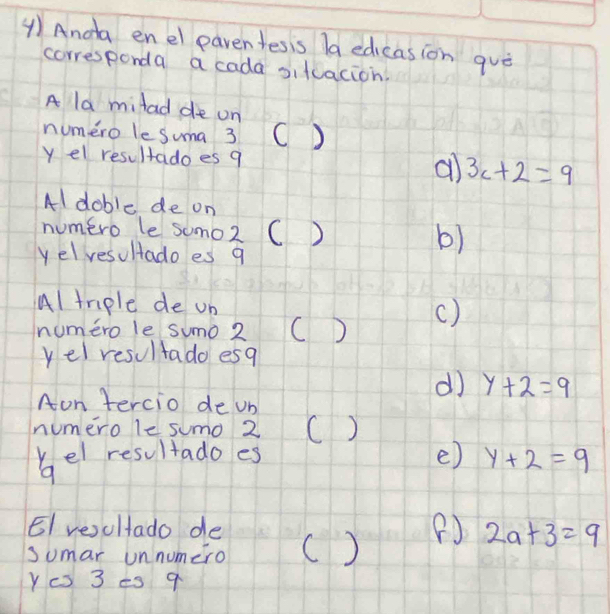 4) Anota en el parentesis la edicasión que
corresponda a cada situación.
A la mitad de un
numéro le suma 3 ( )
y el resultado es 9
a) 3c+2=9
Al doble de un
numéro le sumo 2 ( )
y el resultado es 9
b)
Al triple de un
numéro le sumo 2 ( )
y el resultado es 9
c)
d) y+2=9
A un tercio de un
numéro le sumo 2 ( )
y el resultado es
9
e) y+2=9
El resultado de
sumar un numero ( )
y es 3 es 9
f) 2a+3=9